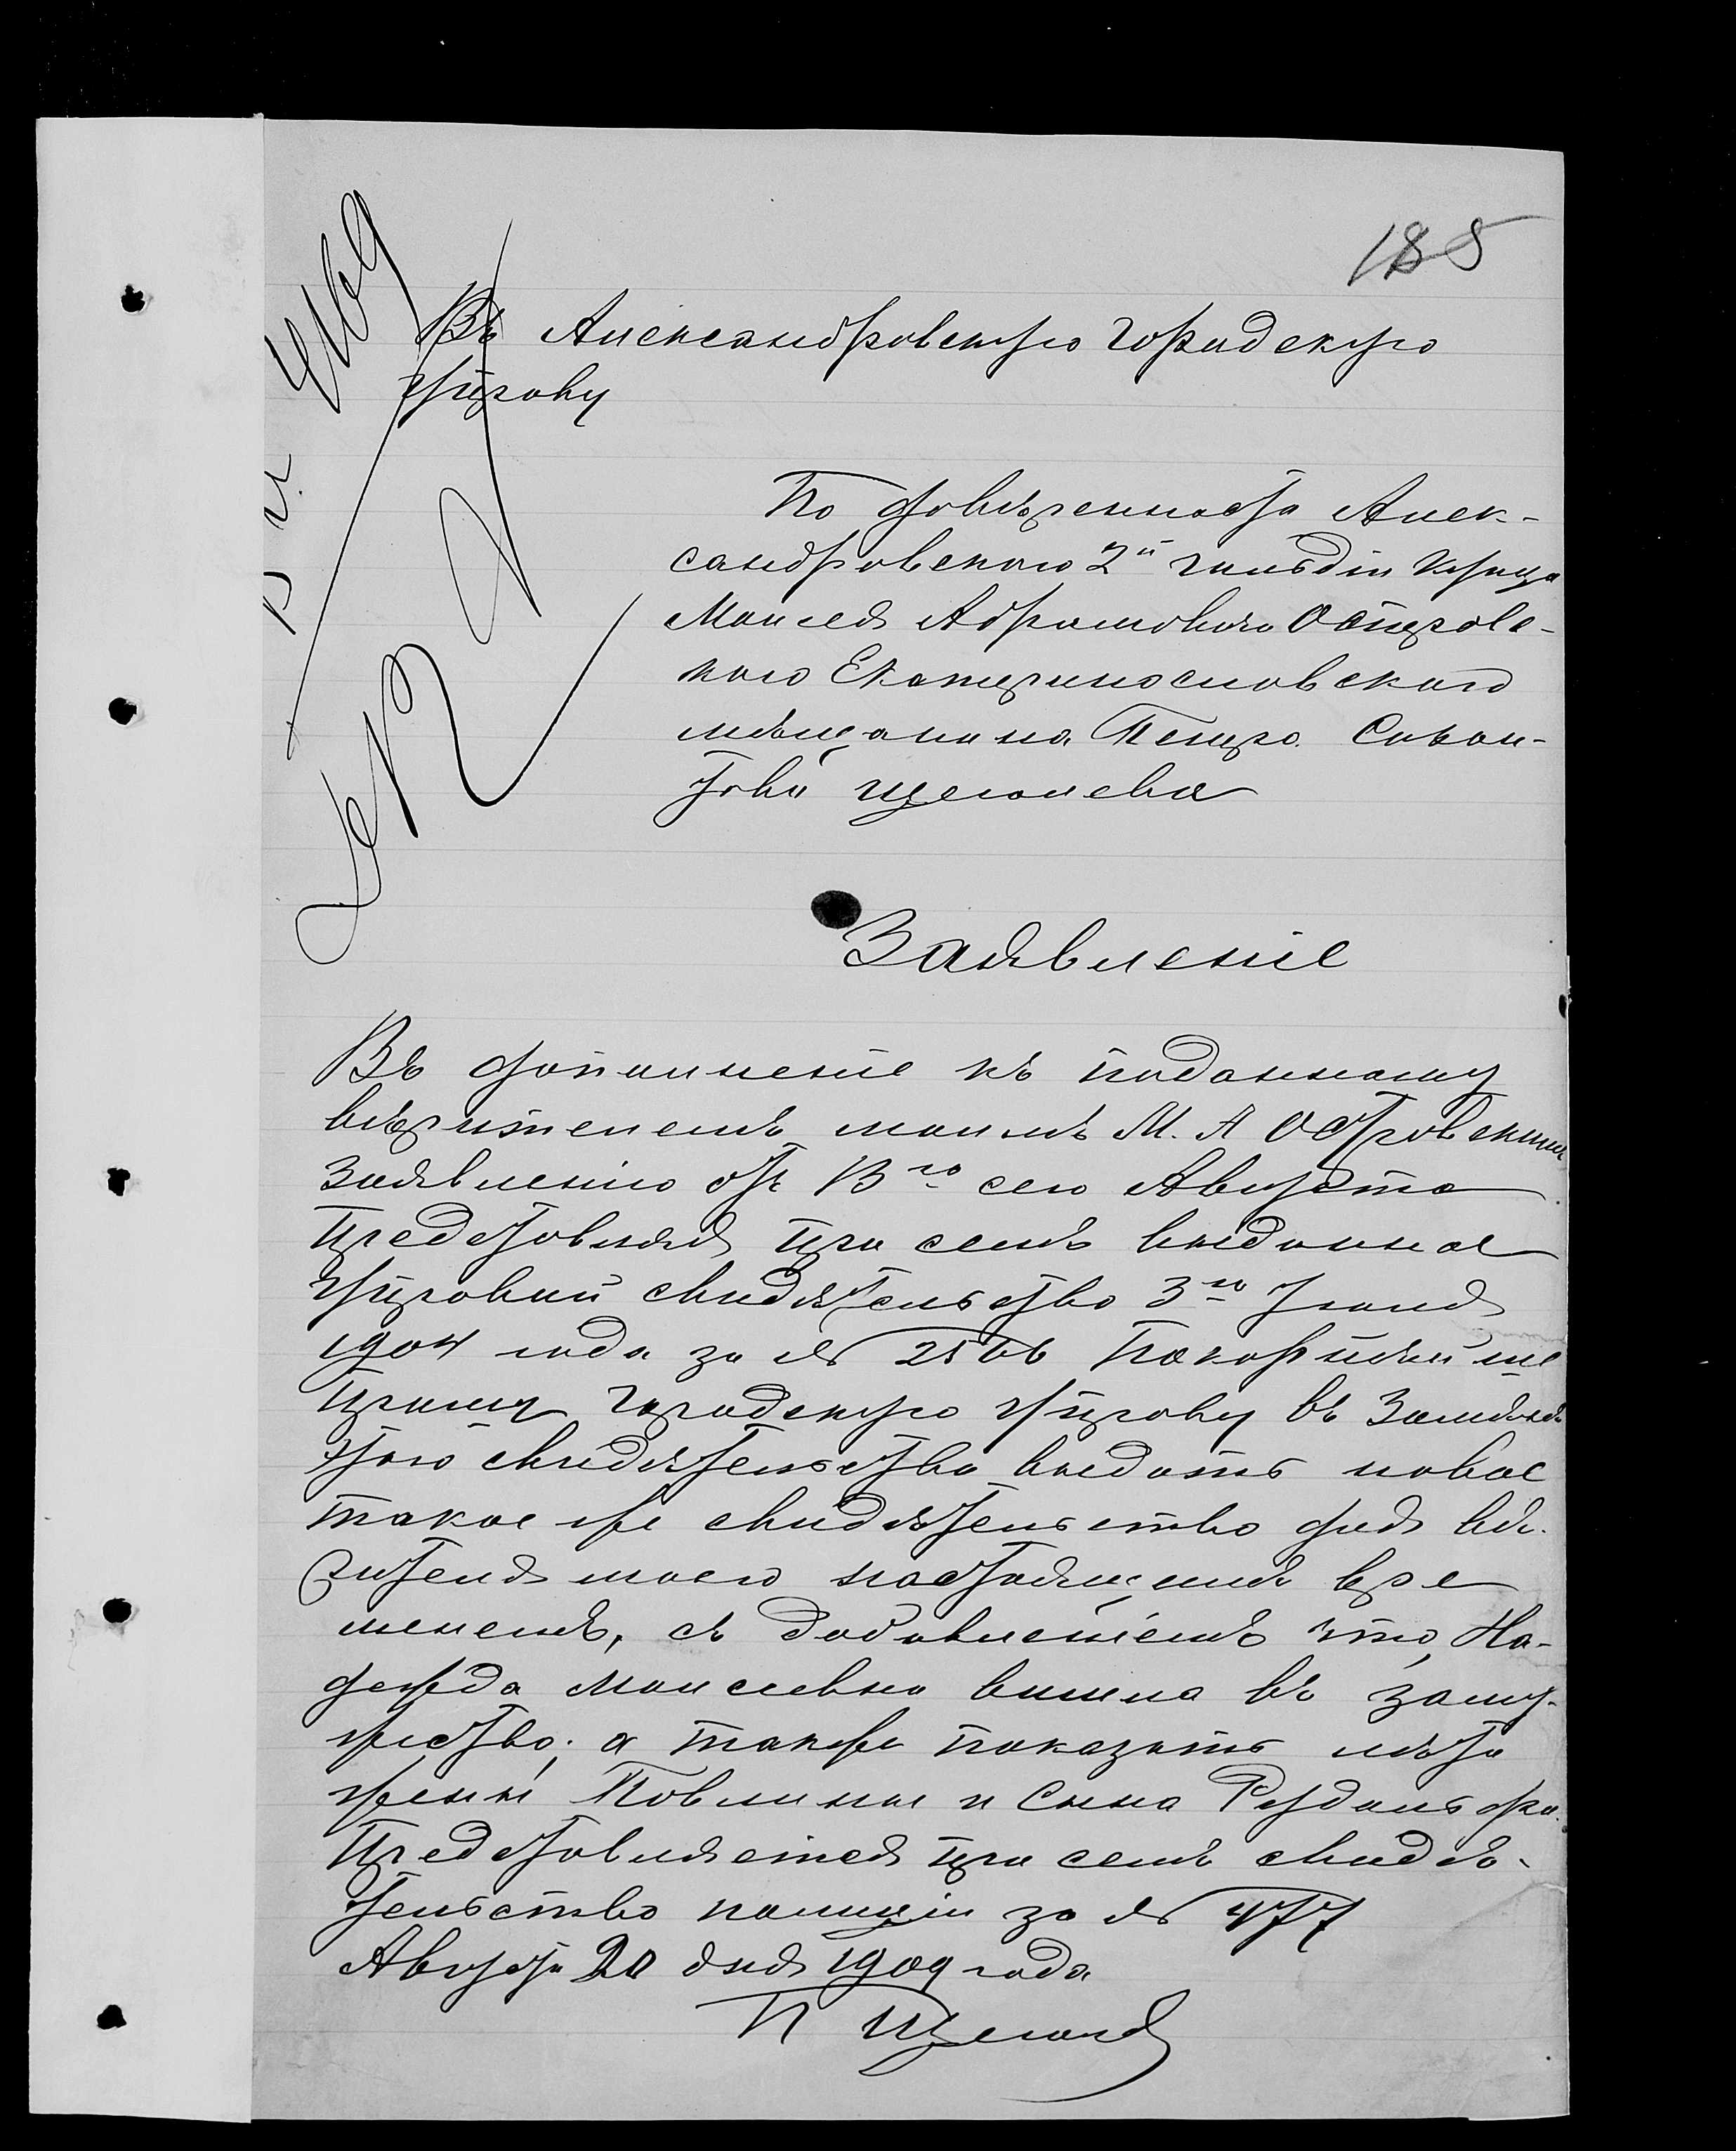 185
Въ Александровскую Городскую
Управу
По довѣренности Алек-
сандровскаго 2й гильдіи купца
Моисея Абрамовича Островс-
каго Екатеринославскаго
мѣщанина Петра Саван-
това Щеголева
Заявленіе
Въ дополненіе къ поданному
вѣрителемъ моимъ М. А Островскимъ
Заявленію отъ 13го сего Августа
Представляя при семъ выданное
Управой свидѣтельство 3го Іюня
1904 года за № 2566 Покорнѣйше
Прошу Городскую Управу въ Замѣнъ
этого свидѣтельства выдать новое
такое же свидѣтельство для вѣ-
рителя моего настоящимъ вре
менемъ, съ добавленіемъ что, На-
дежда Моисеевна вышла въ заму-
жество; а также показать лѣта
жены Повлины и сына Рудольфа.
Представляется при семъ свидѣ-
тельство полиціи за № 477
Августа 20 дня 1909 года
П Щеголев